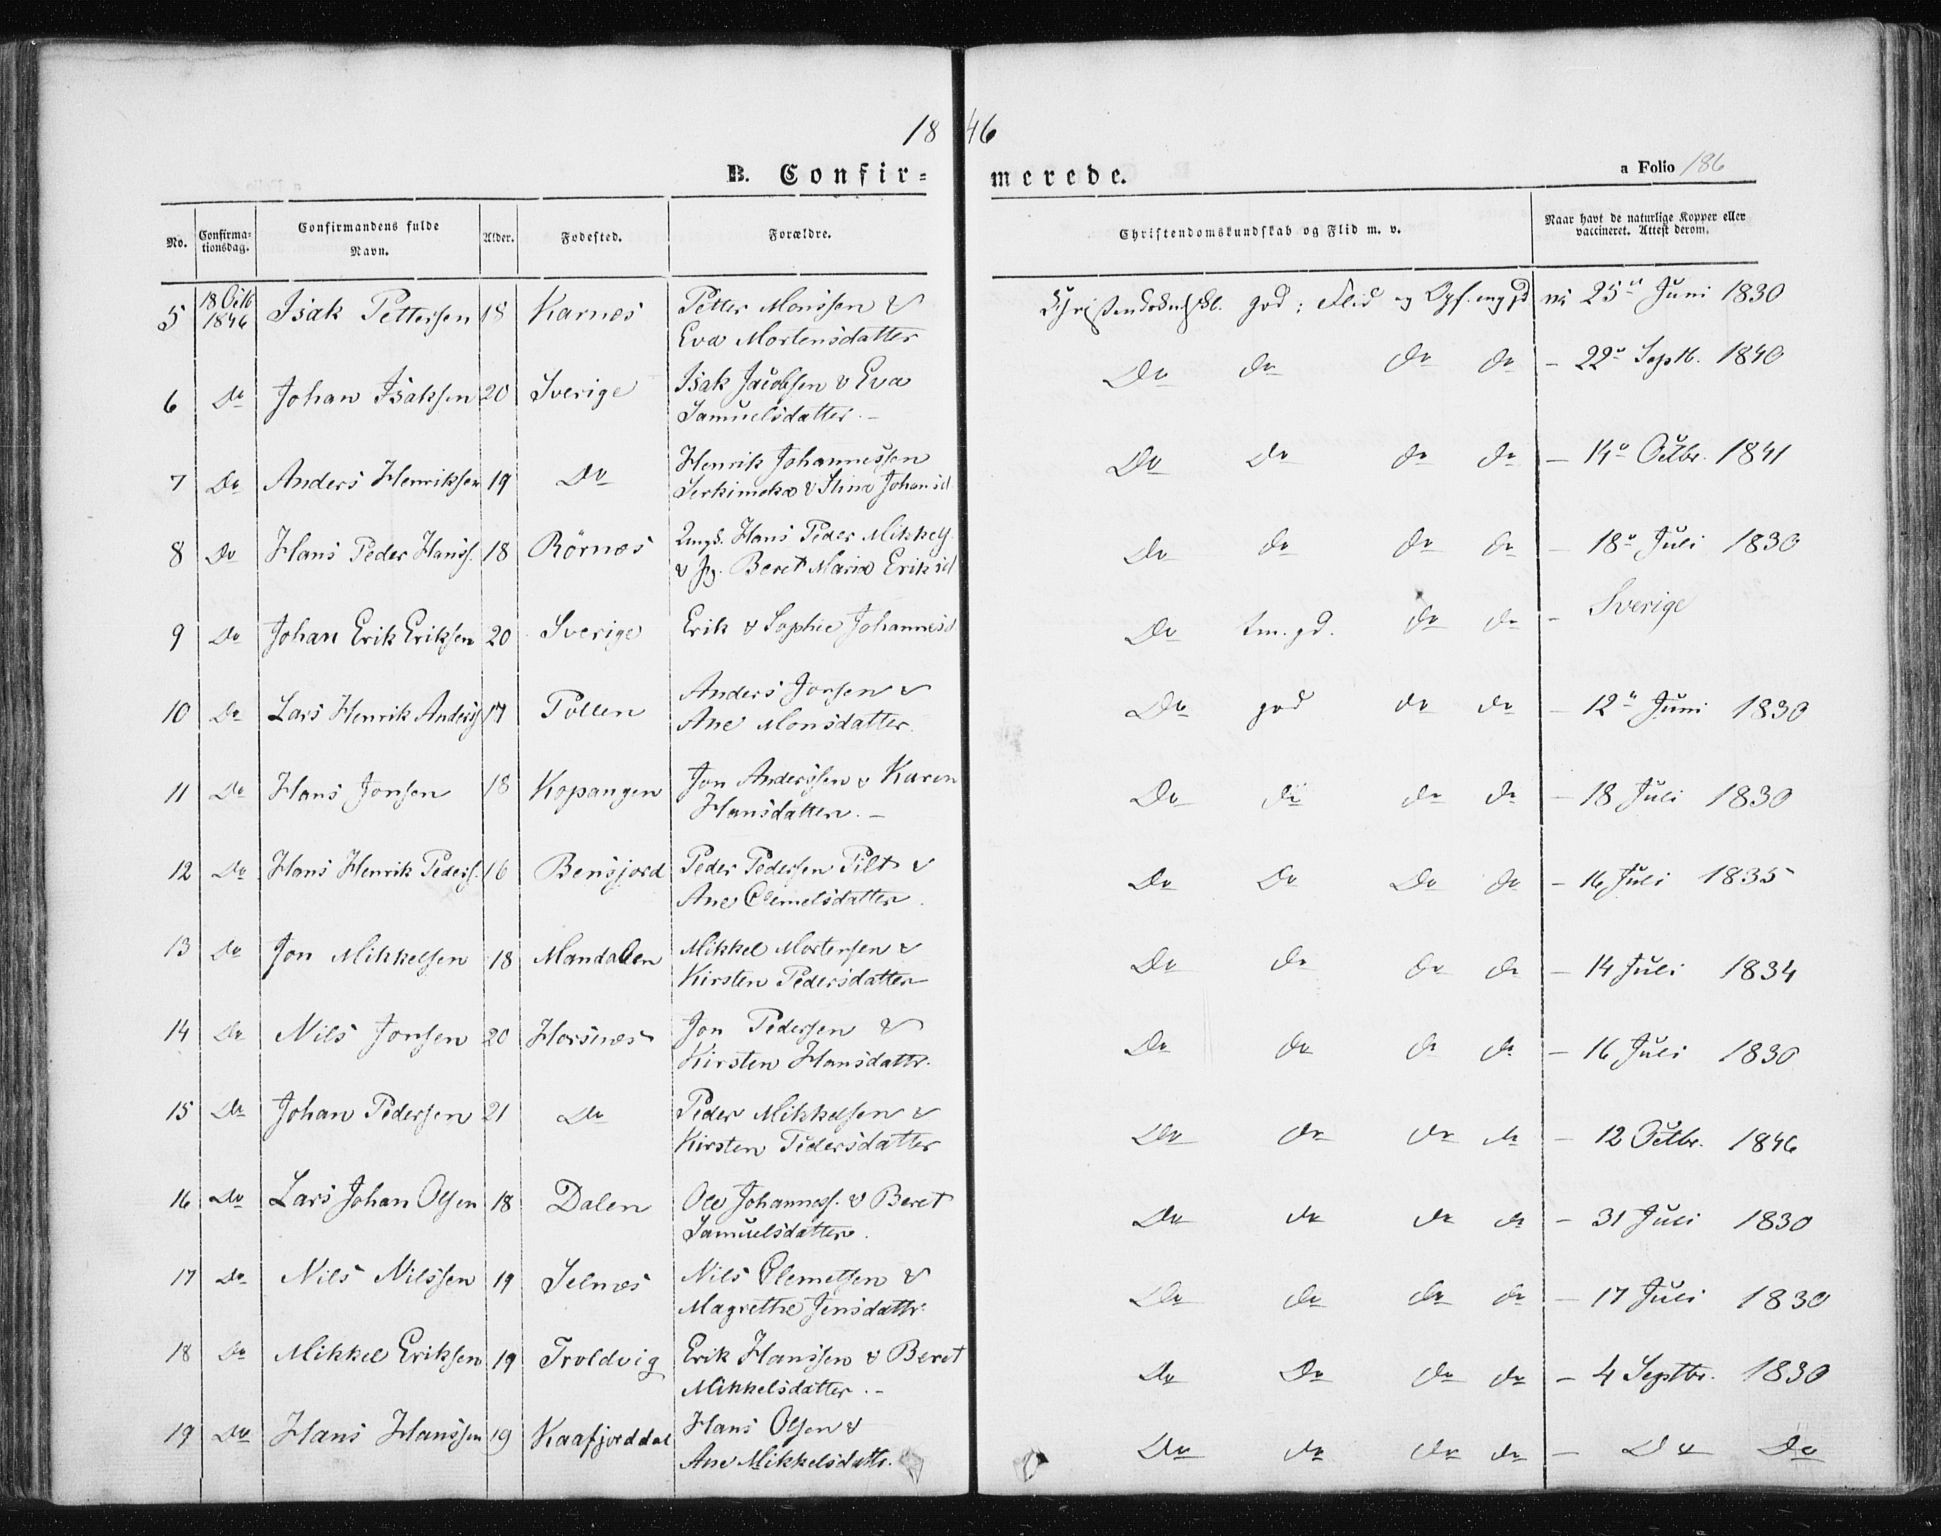 1846
B. Confirmerede.
a Folio 186
No. Confirmationsdag. Confirmandens fulde Navn. Alder. Fodested. Forældre. Christendomskundskab og Flid m. v. Naar havt de naturlige Kopper eller vaccineret. Attest derom.
5 18 Octb 1846 Isak Pettersen 18 Karnæs Petter Monssen & god; Flid og 25de Juni 1830
Eva Mortensdatter
6 Do Johan Isaksen 20 Sverige Isak Jacobsen & Eva Do do do do - 22de Septb. 1840
Samuelsdatter. -
7 Do Anders Henriksen 19 Do Henrik Johannessen Do Do do do - 14de Octbr. 1841
& Stina Johansd
8 Do Hans Peder Hanss. 18 Rörnæs Ungk. Hans Peder Mikkels. Do do do do - 18de Juli 1830
& Pg. Beret Maria Eriksd
9 Do Johan Erik Eriksen 20 Sverige Erik & Sophie Johannesd Do tm. gd. do do - Sverige
10 Do Lars Henrik Anders. 17 Pollen Anders Jonsen & Do god do do - 12te Juni 1830
Ane Monsdatter.
11 Do Hans Jonsen 18 Kopangen Jon Anderssen & Karen Do do do do - 18 Juli 1830
Hansdatter. -
12 Do Hans Henrik Peders. 16 Bensjord Peder Pedersen Pilt & Do Do Do do - 16 Juli 1835
Ane Clemetsdatter.
13 Do Jon Mikkelsen 18 Mandalen Mikkel Mortensen & Do do do do - 14 Juli 1834
Kirsten Pedersdatter
14 Do Nils Jonsen 20 Horsnæs Jon Pedersen & Do do do do - 16 Juli 1830
Kirsten Hansdattr.
15 Do Johan Pedersen 21 Do Peder Mikkelsen & Do do do do - 12 Octbr. 1846
Kirsten Pedersdatter
16 Do Lars Johan Olsen 18 Dalen Ole Johanness. & Beret Do do do do - 31 Juli 1830
Samuelsdatter.
17 Do Nils Nilssen 19 Selnæs Nils Clemetsen & Do do do do - 17 Juli 1830
Magrethe Jensdattr.
18 Do Mikkel Eriksen 19 Troldvig Erik Hanssen & Beret Do Do do do - 4 Septbr. 1830
Mikkelsdatter. -
19 Do Hans Hanssen 19 Kaafjorddal Hans Olsen & Do do do do - Do Do
Ane Mikkelsdattr.